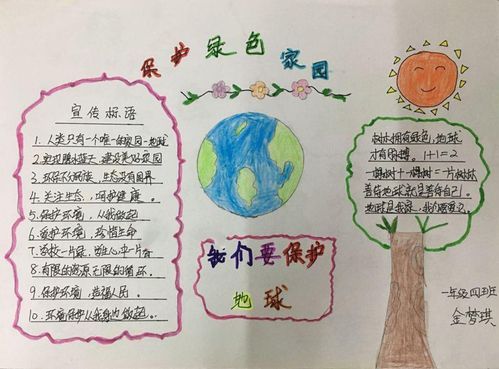 保护绿色家园
宣传标语
1. 人类只有一个唯一的家园—地球
2. 碧水蓝天 建设美好家园
3. 环保不分民族，生态没有国界
4. 关注生态，呵护健康。
5. 保护环境，从我做起
6. 爱护环境，珍惜生命
7. 一片绿，一片
8. 有限的资源无限的循环。
9. 保护环境 造福人民。
10. 环境保护从我身边做起。
我们要保护
地球
树木拥有绿色，地球
才有脉搏。1+1=2
一棵树+一棵树=一片树林
善待地球就是善待自己！
地球是我家，我们要爱它
一年级四班
金梦琪